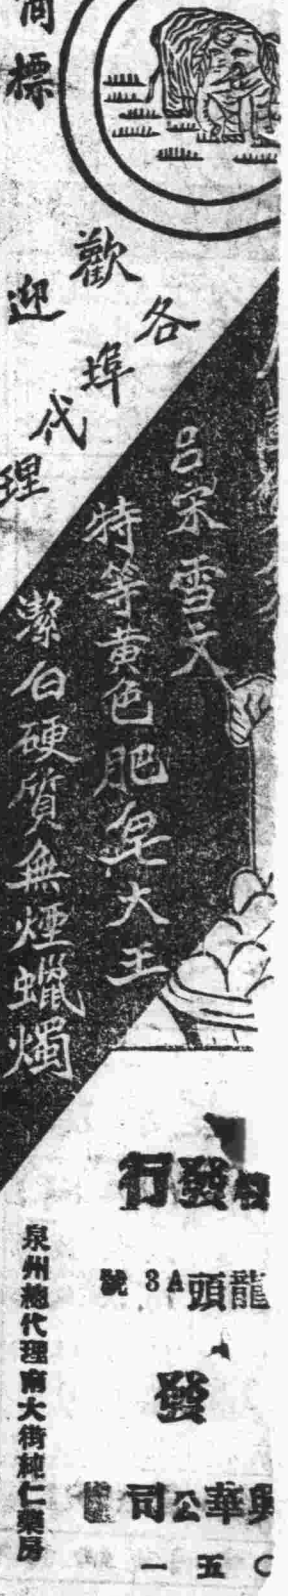 商標
歡迎
各埠代理
呂宋雪文
特等黃色肥皂大王
潔白硬質無煙蠟燭
發行
龍頭A3號
發
興華公司
五一
泉州總代理南大街純仁藥房